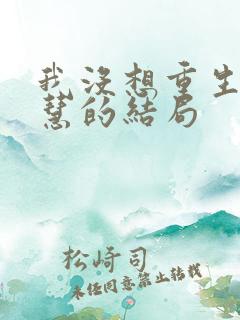 我沒想重生
慧的結局
松崎司
未任同意禁止转载